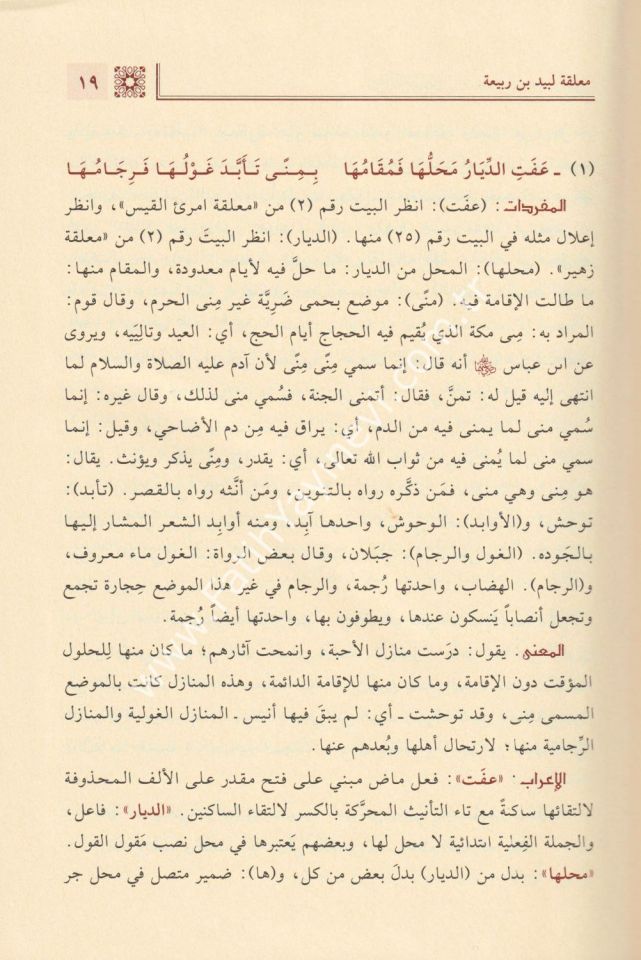 معلقة لبيد بن ربيعة
١٩
(١) ـ عَفَتِ الدِّيَارُ مَحَلُّهَا فَمُقَامُهَا بِـمِـنًـى تَـأَبَّـدَ غَـوْلُـهَـا فَـرِجَـامُـهَـا
المفردات: (عفَت): انظر البيت رقم (٢) من «معلقة امرئ القيس»، وانظر
إعلال مثله في البيت رقم (٢٥) منها. (الديار): انظر البيتَ رقم (٢) من «معلقة
زهير». (محلها): المحل من الديار: ما حلَّ فيه لأيام معدودة، والمقام منها:
ما طالت الإقامة فيه، (منًى): موضع بحمى ضَرِيَّة غير مِنى الحرم، وقال قوم:
المراد به: مِنى مكة الذي يُقيم فيه الحجاج أيام الحج، أي: العيد وتالِيَيه، ويروى
عن ابن عباس ﵄ أنه قال: إنما سمي مِنًى مِنًى لأن آدم عليه الصلاة والسلام لما
انتهى إليه قيل له: تمنَّ، فقال: أتمنى الجنة، فسُمي منى لذلك، وقال غيره: إنما
سُمي منى لما يمنى فيه من الدم، أي: يراق فيه مِن دم الأضاحي، وقيل: إنما
سمي منى لما يُمنى فيه من ثواب الله تعالى، أي: يقدر، ومِنًى يذكر ويؤنث. يقال:
هو مِنى وهي منى، فمَن ذكَّره رواه بالتنوين، ومَن أنَّثه رواه بالقصر. (تأبد):
توحش، و(الأوابد): الوحوش، واحدها آبِد، ومنه أوابِد الشعر المشار إليها
بالجَوده. (الغول والرجام): جبَلان، وقال بعض الرواة: الغول ماء معروف،
و(الرجام). الهضاب، واحدتها رُجمة، والرجام في غير هذا الموضع حِجارة تجمع
وتجعل أنصاباً يَنسكون عندها، ويطوفون بها، واحدتها أيضاً رُجمة.
المعنى. يقول: درَست منازل الأحبة، وانمحت آثارهم؛ ما كان منها لِلحلول
المؤقت دون الإقامة، وما كان منها للإقامة الدائمة، وهذه المنازل كانت بالموضع
المسمى مِنى، وقد توحشت ـ أي: لم يبقَ فيها أنيس ـ المنازل الغولية والمنازل
الرِّجامية منها؛ لارتحال أهلها وبُعدهم عنها.
الإعراب: «عفَت»: فعل ماض مبني على فتح مقدر على الألف المحذوفة
لالتقائها ساكنةً مع تاء التأنيث المحرَّكة بالكسر لالتقاء الساكنين. «الديار»: فاعل،
والجملة الفِعلية ابتدائية لا محل لها، وبعضهم يَعتبرها في محل نصب مَقول القول.
«محلها»: بدل من (الديار) بدلَ بعض من كل، و(ها): ضمير متصل في محل جر